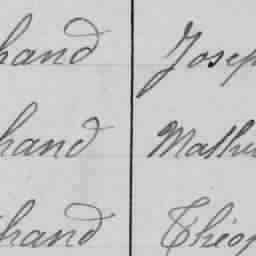 hand Josep
hand Mathu
hand Théop